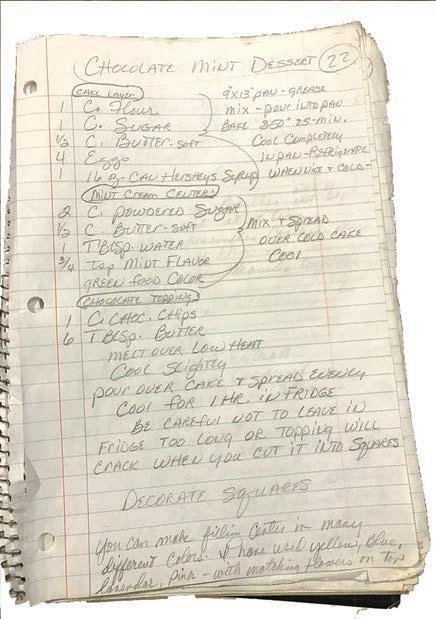 CHOCOLATE MINT DESSERT 22
CAKE LAYER
1 C. Flour
1 C. SUGAR
1/2 C. BUTTER-SOFT
4 Eggs
1 16 oz. CAN HERSHEYS SYRUP
9"X13" PAN - GREASE
MIX - POUR INTO PAN
BAKE 350° 25-MIN.
COOL COMPLETELY
IN PAN - REFRIGERATE
WHEN NICE & COLD -
MINT CREAM CENTER:
2 C. POWDERED SUGAR
1/2 C. BUTTER-SOFT
1 TBLSP. WATER
3/4 tsp MINT FLAVOR
GREEN FOOD COLOR
MIX & SPREAD
OVER COLD CAKE
COOL
CHOCOLATE TOPPING
1 C. CHOC. CHIPS
6 TBLSP. BUTTER
MELT OVER LOW HEAT
COOL SLIGHTLY
POUR OVER CAKE & SPREAD EVENLY
COOL FOR 1 HR. IN FRIDGE
BE CAREFUL NOT TO LEAVE IN
FRIDGE TOO LONG OR TOPPING WILL
CRACK WHEN YOU CUT IT INTO SQUARES
DECORATE SQUARES
You can make filling in many
different colors. I have used yellow, blue,
lavendar, pink - with matching flowers on top